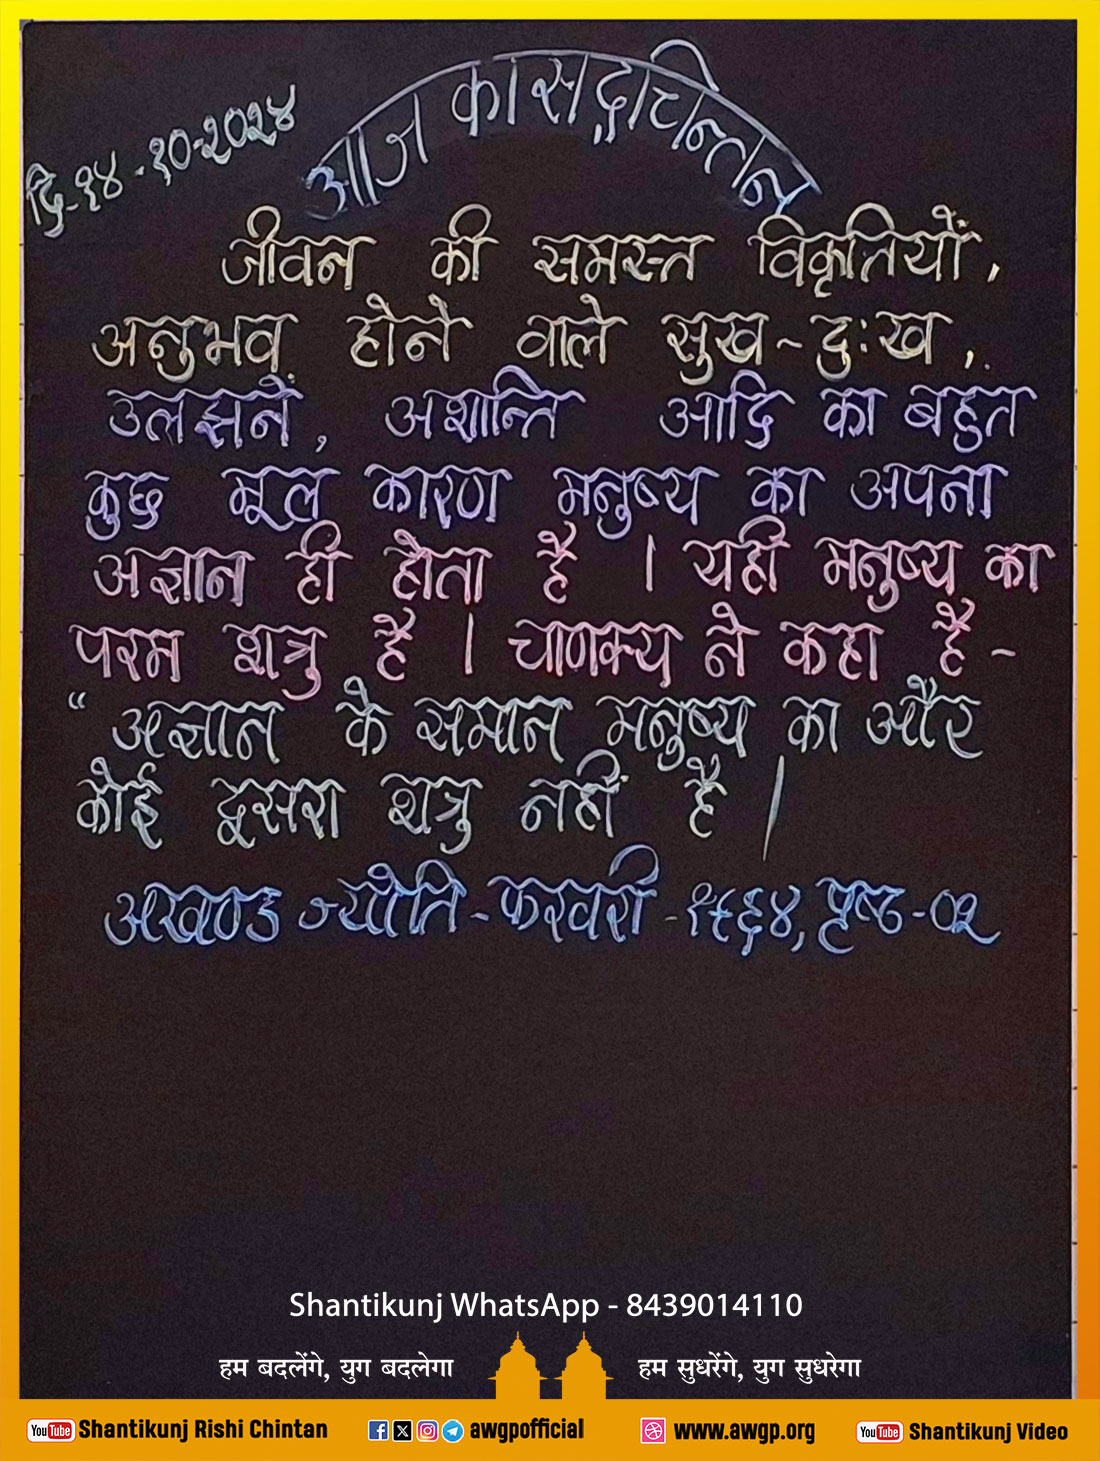 आज का सद्चिन्तन
दि-१४-१०-२०२४
जीवन की समस्त विकृतियों,
अनुभव होने वाले सुख-दुःख,
उलझनें, अशान्ति आदि का बहुत
कुछ मूल कारण मनुष्य का अपना
अज्ञान ही होता है । यही मनुष्य का
परम शत्रु है । चाणक्य ने कहा है -
“अज्ञान के समान मनुष्य का और
कोई दूसरा शत्रु नहीं है ।
अखण्ड ज्योति - फरवरी - १९६४, पृष्ठ - ०२
Shantikunj WhatsApp - 8439014110
हम बदलेंगे, युग बदलेगा हम सुधरेंगे, युग सुधरेगा
YouTube Shantikunj Rishi Chintan awgpofficial www.awgp.org YouTube Shantikunj Video